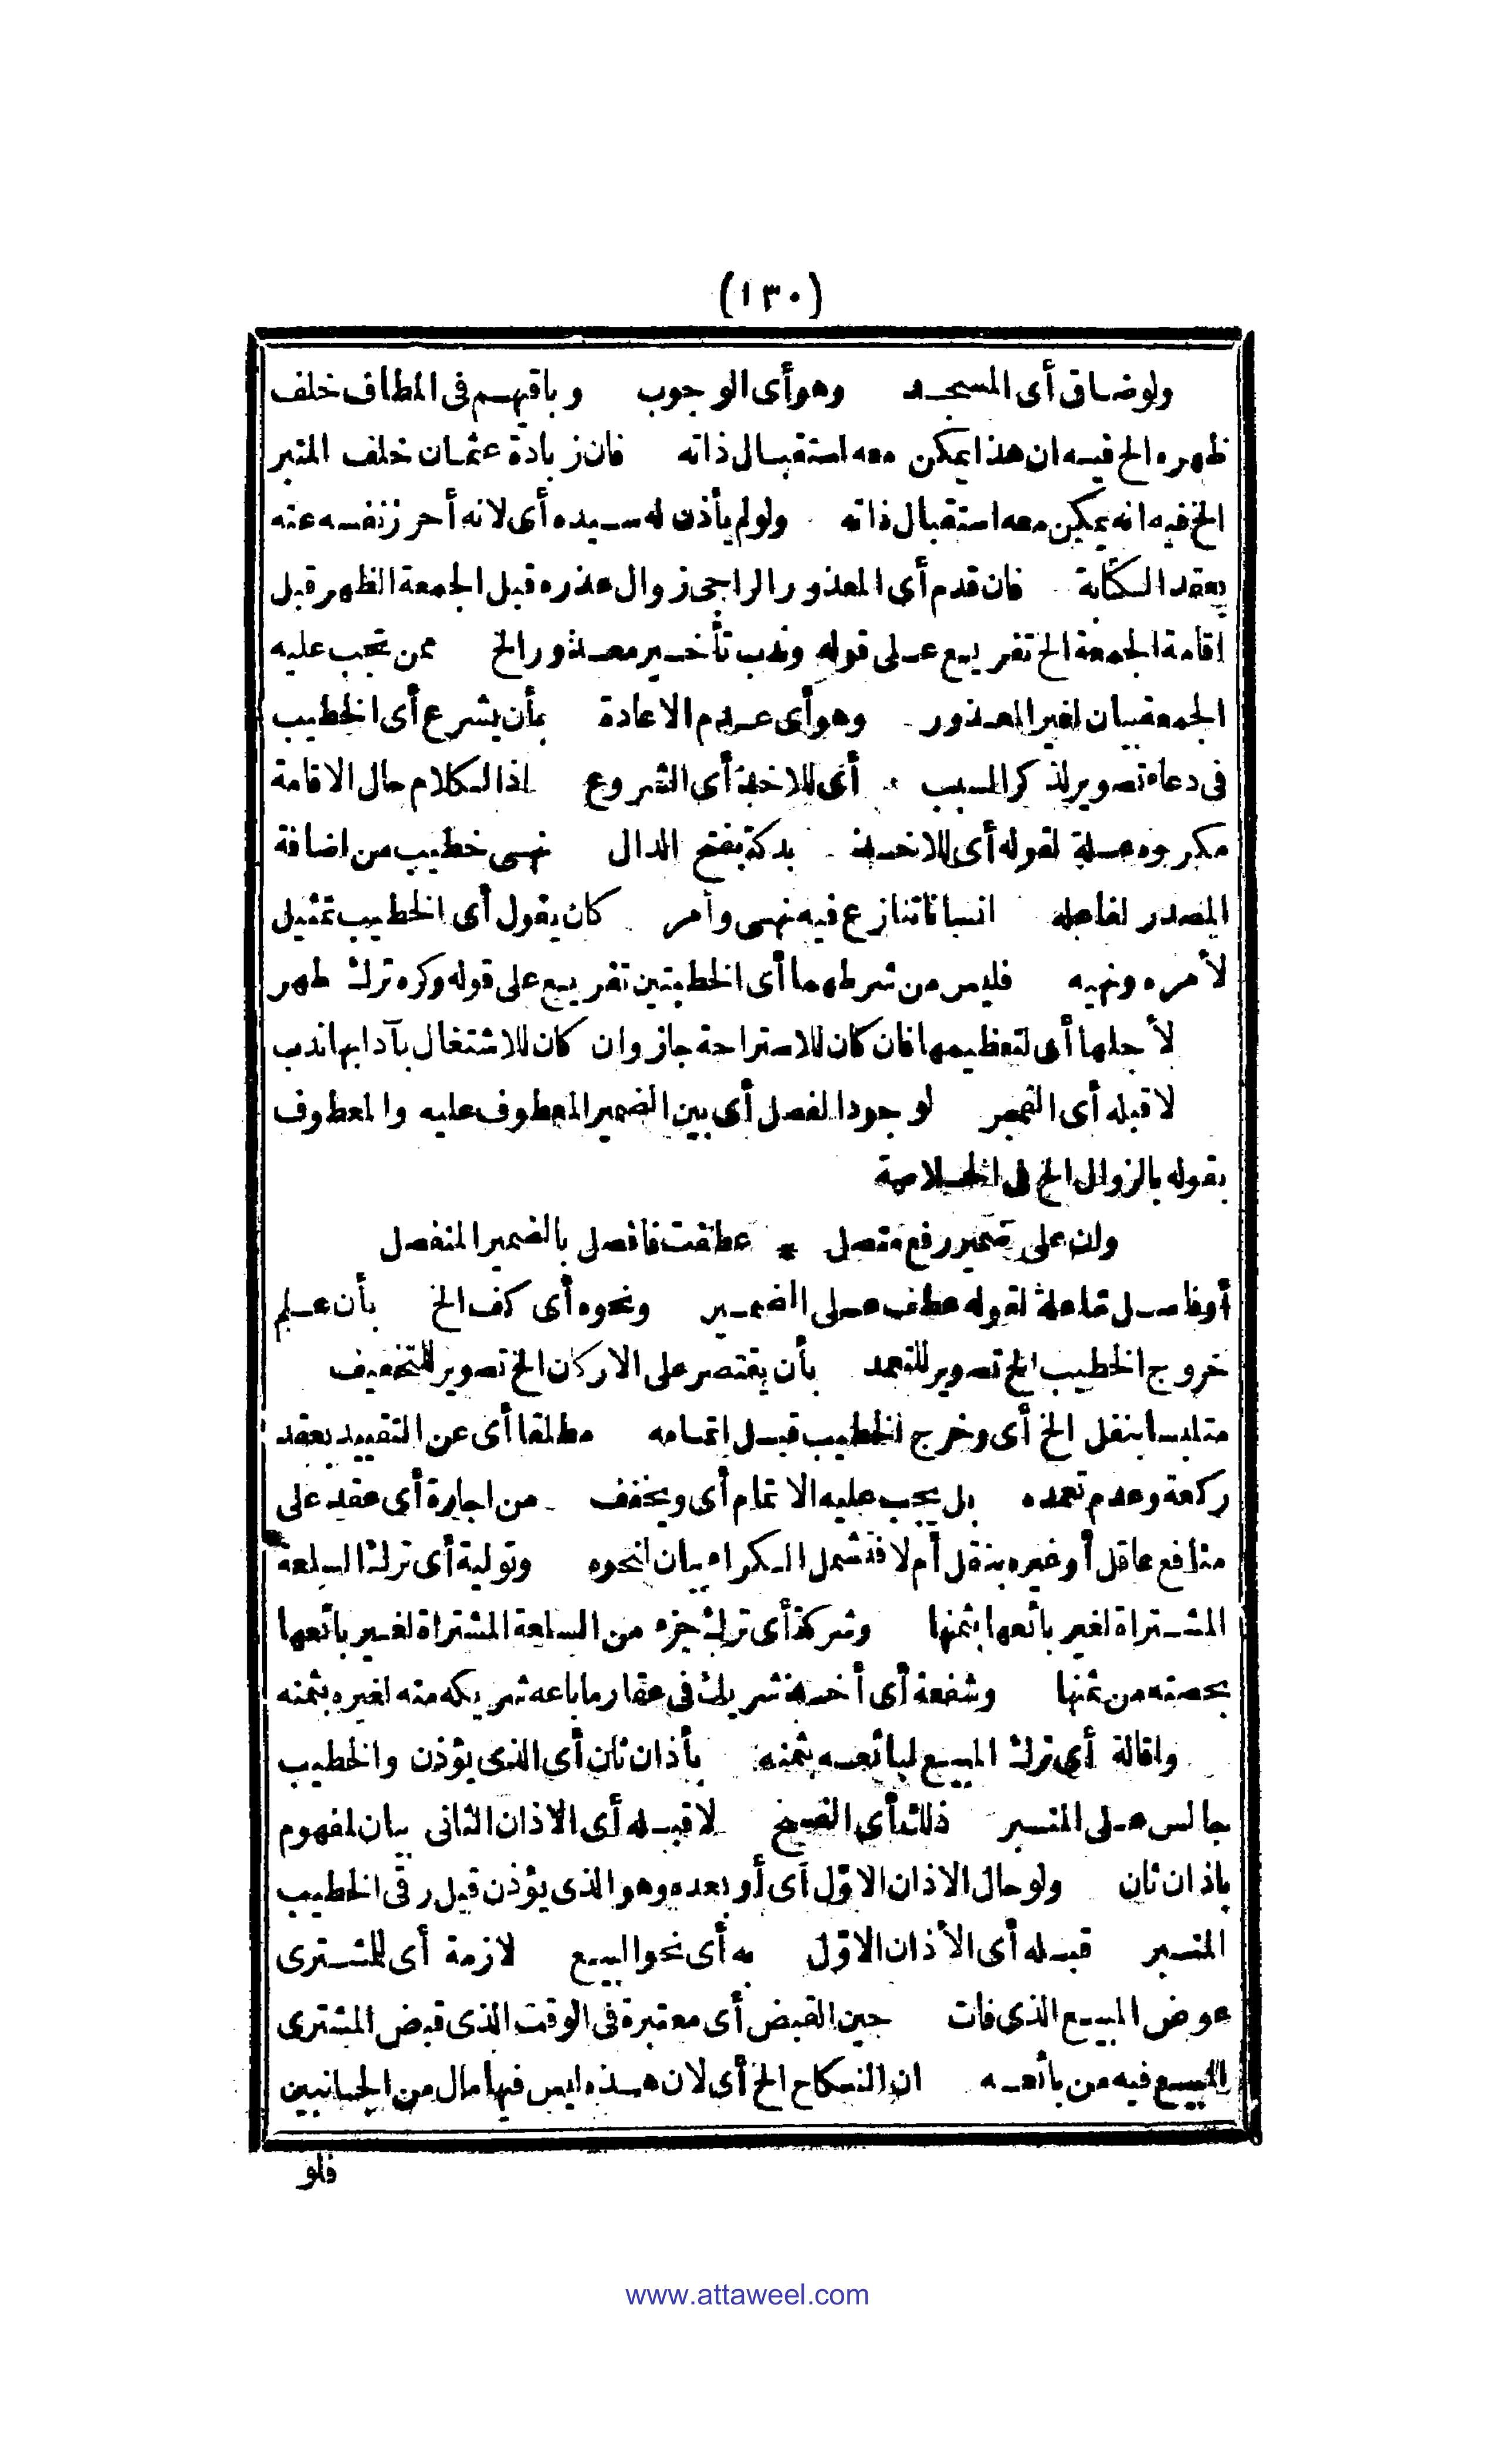 (١٣٠)
ولو ضاق أى المسجد وهو أى الوجوب وباقيهم فى المطاف خلف
ظهره الخ فيه ان هذا يمكن معه استقبال ذاته فان زيادة عثمان خلف المنبر
الخ فيه انه يمكن معه استقبال ذاته ولو لم يأذن له سيده أى لانه أحرز نفسه عنه
بعقد الكتابة فان قدم أى المعذور الراجى زوال عذره قبل الجمعة الظهر قبل
اقامة الجمعة الخ تفريع على قوله وندب تأخير معذور الخ ممن تجب عليه
الجمعة بيان لغير المعذور وهو أى عدم الاعادة بأن يشرع أى الخطيب
فى دعاء تصوير لذكر السبب أى للاخذ أى الشروع اذ الكلام حال الاقامة
مكروه صلة لقوله أى للاخذ بدكة بفتح الدال نهى خطيب من اضافة
المصدر لفاعله انسانا تنازع فيه نهى وأمر كان يقول أى الخطيب تمثيل
لأمره ونهيه فليس من شرطهما أى الخطبتين تفريع على قوله وكره ترك طهر
لأجلها أى لتعظيمها فان كان للاستراحة جاز وان كان للاشتغال بآدابها ندب
لا قبله أى الفجر لوجود الفصل أى بين الضمير المعطوف عليه والمعطوف
بقوله بالزوال الخ فى الخلاصة
وان على ضمير رفع متصل * عطفت فافصل بالضمير المنفصل
أو فاصل ما علة لقوله عطف على الضمير ونحوه أى كف الخ بأن علم
خروج الخطيب الخ تصوير للتعمد بأن يقتصر على الاركان الخ تصوير للتخفيف
متلبسا بنفل الخ أى وخرج الخطيب قبل اتمامه مطلقا أى عن التقييد بعقد
ركعة وعدم تعمده بل يجب عليه الاتمام أى ويخفف من اجارة أى عقد على
منافع عاقل أو غيره ينقل أم لا فتشمل الكراء بيان لنحوه وتولية أى ترك السلعة
المشتراة لغير بائعها بثمنها وشركة أى ترك جزء من السلعة المشتراة لغير بائعها
بحصته من ثمنها وشفعة أى أخذ شريك فى عقار ما باعه شريكه منه لغيره بثمنه
واقالة أى ترك المبيع لبائعه بثمنه بأذان ثان أى الذى يؤذن والخطيب
جالس على المنبر ذلك أى الفسخ لا قبله أى الاذان الثانى بيان لمفهوم
باذان ثان ولو حال الاذان الاوّل أى أو بعده وهو الذى يؤذن قبل رقى الخطيب
المنبر قبله أى الأذان الاوّل به أى نحو البيع لازمة أى للمشترى
عوض المبيع الذى فات حين القبض أى معتبرة فى الوقت الذى قبض المشترى
المبيع فيه من بائعه ان النكاح الخ أى لان هذه ليس فيها مال من الجانبين
فلو
www.attaweel.com